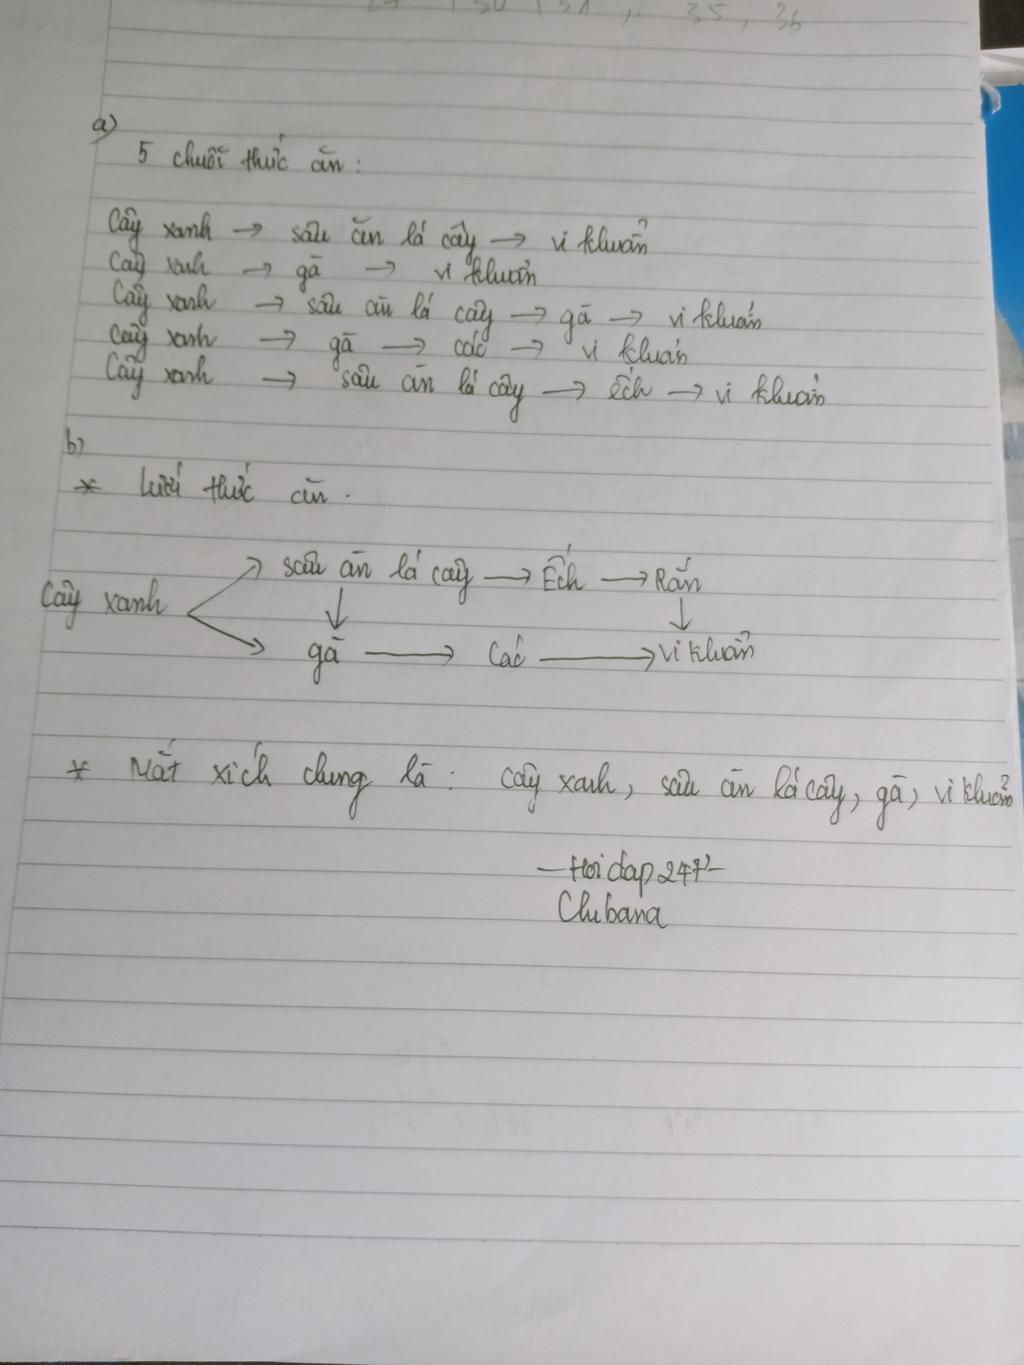 35, 36
a)
5 chuỗi thức ăn:
Cây xanh → sâu ăn lá cây → vi khuẩn
Cây xanh → gà → vi khuẩn
Cây xanh → sâu ăn lá cây → gà → vi khuẩn
Cây xanh → gà → cáo → vi khuẩn
Cây xanh → sâu ăn lá cây → ếch → vi khuẩn
b)
* Lưới thức ăn.
sâu ăn lá cây → Ếch → Rắn
Cây xanh
gà → Cáo → vi khuẩn
* Mắt xích chung là: cây xanh, sâu ăn lá cây, gà, vi khuẩn
-Hoidap247-
Chibana